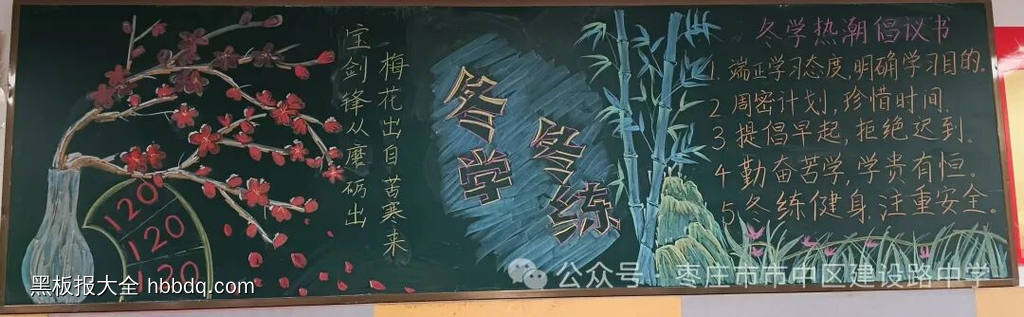 宝剑锋从磨砺出
梅花出自苦寒来
120
120
120
冬学
冬练
冬学热潮倡议书
1. 端正学习态度,明确学习目的。
2 周密计划,珍惜时间.
3 提倡早起,拒绝迟到.
4 勤奋苦学,学贵有恒.
5. 冬练健身,注重安全。
黑板报大全 hbbdq.com
公众号 枣庄市市中区建设路中学